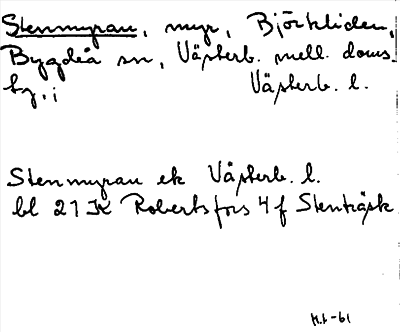 Stenmyran, myr, Björkliden,
Bygdeå sn, Västerb. mell. doms.
hg.; Västerb. l.
Stenmyran ek Västerb. l.
bl 21 K Robertsfors 4 f Stenträsk
H.L-61